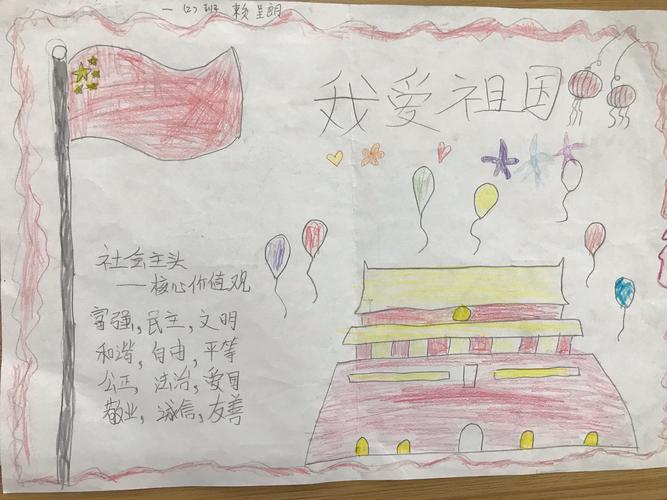 一(2)班 赖呈朗
我爱祖国
社会主头
——核心价值观
富强,民主,文明
和谐,自由,平等
公正,法治,爱国
敬业,诚信,友善